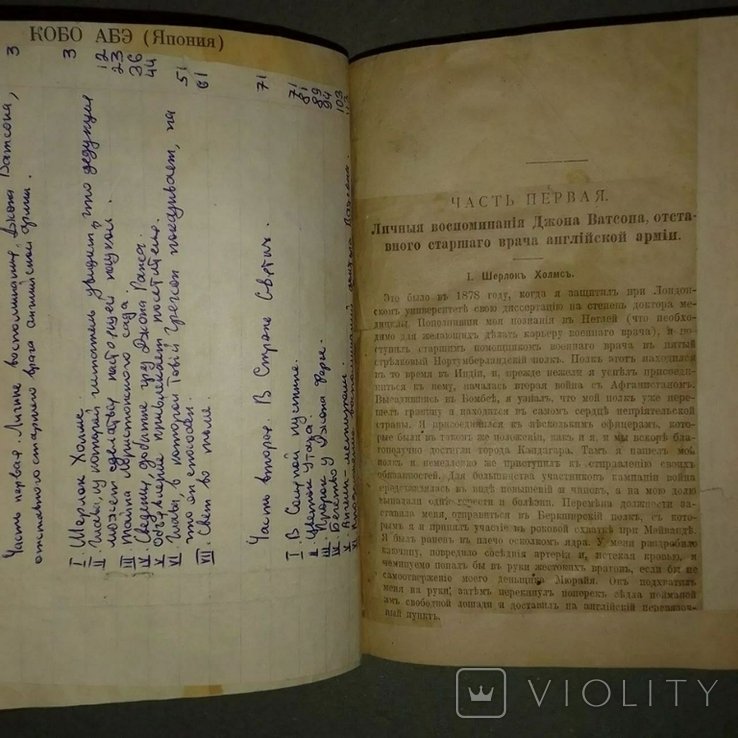 КОБО АБЭ (Япония)
Часть первая. Личные воспоминания, Джона Ватсона, 3
отставного старшего врача английской армии.
I Шерлок Холмс. 3
II Глава, из которой читатель увидит, что дедукция
может сделаться настоящей наукой. 12
III Тайна Лористонского сада 23
IV Сведения, добытые Джона Ранса. 36
V Объявление привлекает посетителя. 44
VI Глава, в которой Товий Грегсон показывает, на
что он способен. 51
VII Свет во тьме. 61
Часть вторая. В Стране Святых. 71
I В Соляной пустыне. 71
II Цветок Утаха. 81
III Пророк у Джона 89
IV Бегство. 94
V 103
VI Продолжение воспоминаний
ЧАСТЬ ПЕРВАЯ.
Личныя воспоминанія Джона Ватсона, отста-
вного старшаго врача англійской арміи.
I. Шерлок Холмсъ.
Это было въ 1878 году, когда я защитилъ при Лондон-
скомъ университетѣ свою диссертацію на степень доктора ме-
дицины. Пополнивши мои познанія въ Нетлей (что необхо-
димо для желающихъ дѣлать карьеру военнаго врача), я по-
ступилъ старшимъ помощникомъ военнаго врача въ пятый
стрѣлковый Нортумберландскій полкъ. Полкъ этотъ находился
въ то время въ Индіи, и, прежде нежели я успѣлъ присоеди-
ниться къ нему, началась вторая война съ Афганистаномъ.
Высадившись въ Бомбеѣ, я узналъ, что мой полкъ уже пере-
шелъ границу и находится въ самомъ сердцѣ непріятельской
страны. Я присоединился къ нѣсколькимъ офицерамъ, кото-
рые были въ такомъ же положеніи, какъ и я, и мы вскорѣ бла-
гополучно достигли города Кандагара. Тамъ я нашелъ мой
полкъ и немедленно же приступилъ къ отправленію своихъ
обязанностей. Для большинства участниковъ кампанія война
представлялась въ видѣ повышеній и чиновъ, а на мою долю
выпадали однѣ горести и болѣзни. Перемѣна должности за-
ставила меня отправиться въ Беркширскій полкъ, съ кото-
рымъ я и принялъ участіе въ роковой схваткѣ при Мейвандѣ.
Я былъ раненъ въ плечо осколкомъ ядра. У меня раздробило
ключицу, повредило сосѣднія артеріи и, истекая кровью, я
неминуемо попалъ бы въ руки жестокихъ враговъ, если бы не
самоотверженіе моего деньщика Мюрайя. Онъ подхватилъ
меня на руки, затѣмъ перекинулъ поперекъ сѣдла пойманной
имъ свободной лошади и доставилъ на англійскій перевязоч-
ный пунктъ.
VIOLITY